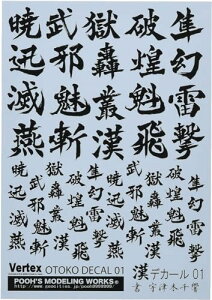 隼幻雷撃
破煌魁飛
獄轟叢漢
武邪魅斬
暁迅滅燕
隼幻雷撃
破煌魁飛
獄轟叢漢
武邪魅斬
暁迅滅燕
Vertex OTOKO DECAL 01
POOH'S MODELING WORKS®
漢デカール 01
書 宇津木